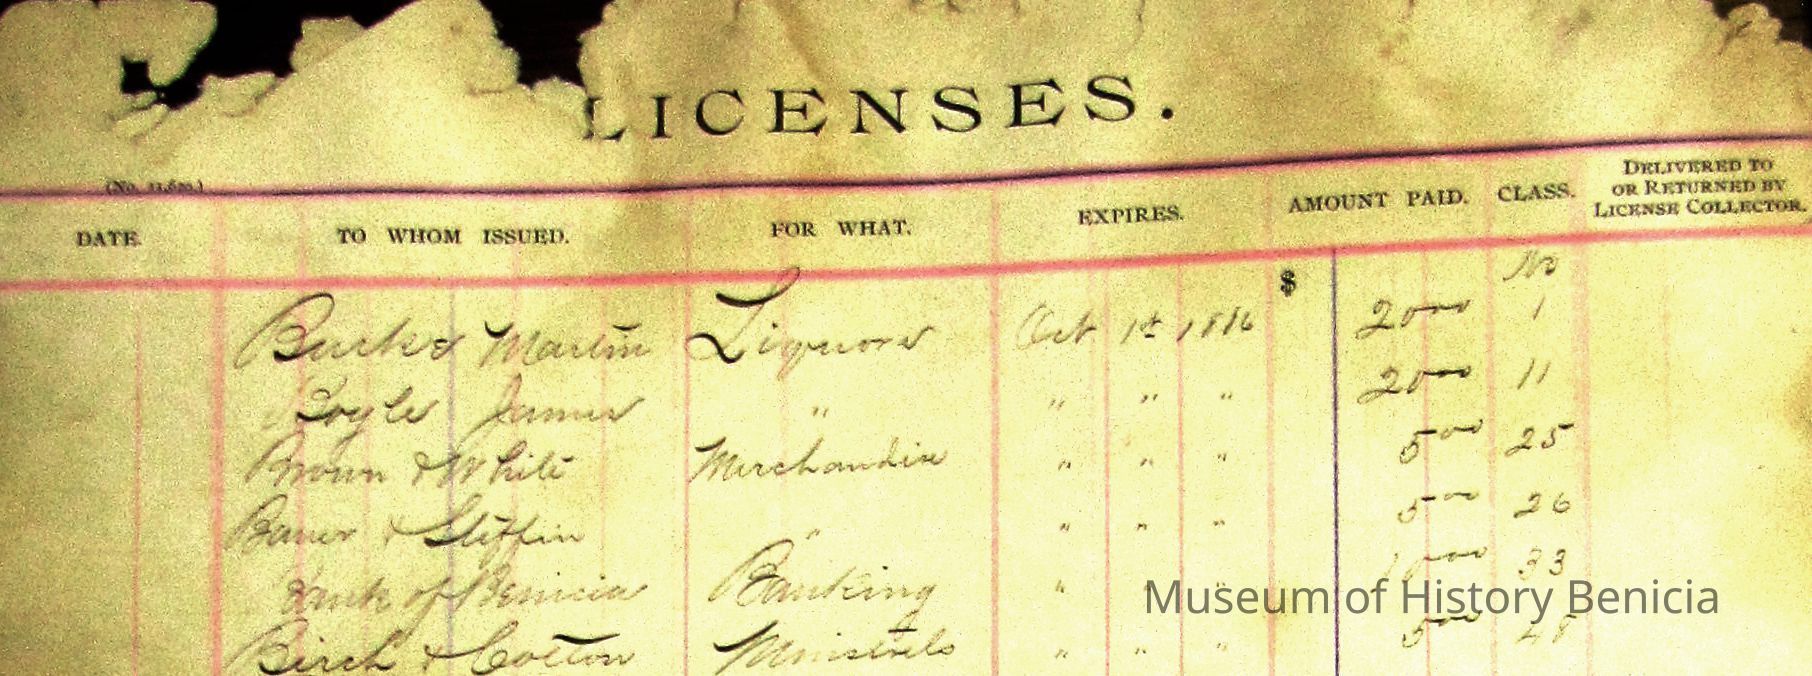 LICENSES.
(No. 11,620.)
DATE. TO WHOM ISSUED. FOR WHAT. EXPIRES. AMOUNT PAID. CLASS. DELIVERED TO OR RETURNED BY LICENSE COLLECTOR.
$ No
Burke Martin Liquors Oct 1st 1886 20 00 1
Boyle James " " " " 20 00 11
Brown & White Merchandise " " " 5 00 25
Bauer & Steffin " " " " 5 00 26
Bank of Benicia Banking " " 10 00 33
Museum of History Benicia
Birch & Cotton Minstrels " " " 5 00 48